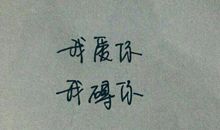 我爱你
我磚你